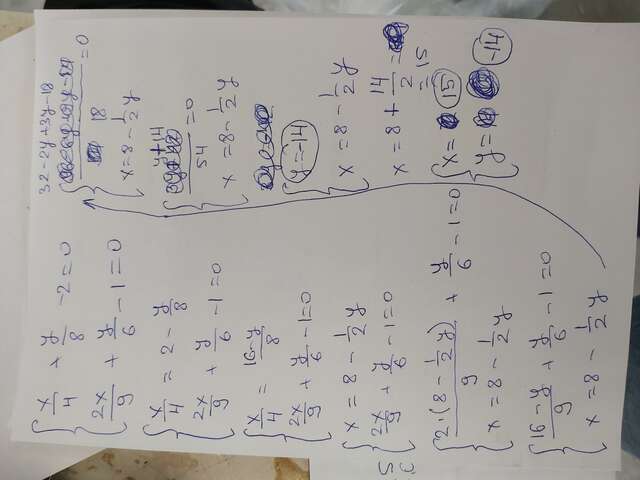 x/4 + y/8 - 2 = 0
2x/9 + y/6 - 1 = 0
x/4 = 2 - y/8
2x/9 + y/6 - 1 = 0
x/4 = 16 - y/8
2x/9 + y/6 - 1 = 0
x = 8 - 1/2 y
2x/9 + y/6 - 1 = 0
2·(8 - 1/2 y)/9 + y/6 - 1 = 0
x = 8 - 1/2 y
16 - y/9 + y/6 - 1 = 0
x = 8 - 1/2 y
32 - 2y + 3y - 18/18 = 0
x = 8 - 1/2 y
y + 14/54 = 0
x = 8 - 1/2 y
y = -14
x = 8 - 1/2 y
x = 8 + 14/2 = 15
x = 15
y = -14